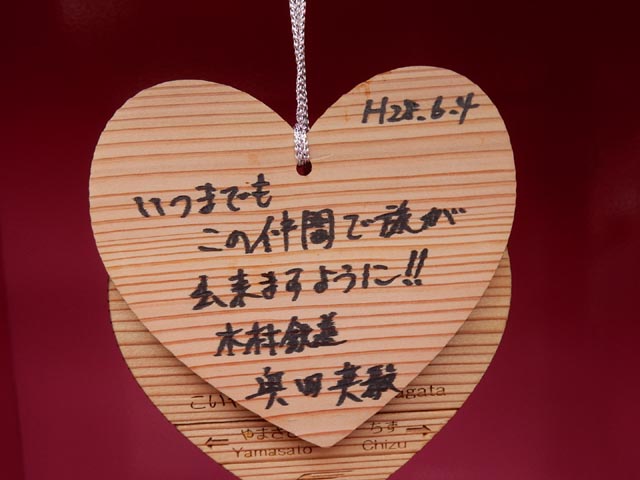 H28.6.4
いつまでも
この仲間で旅が
出来ますように!!
木村
奥田英毅
こいや gata
← やまさと ちず →
Yamasato Chizu